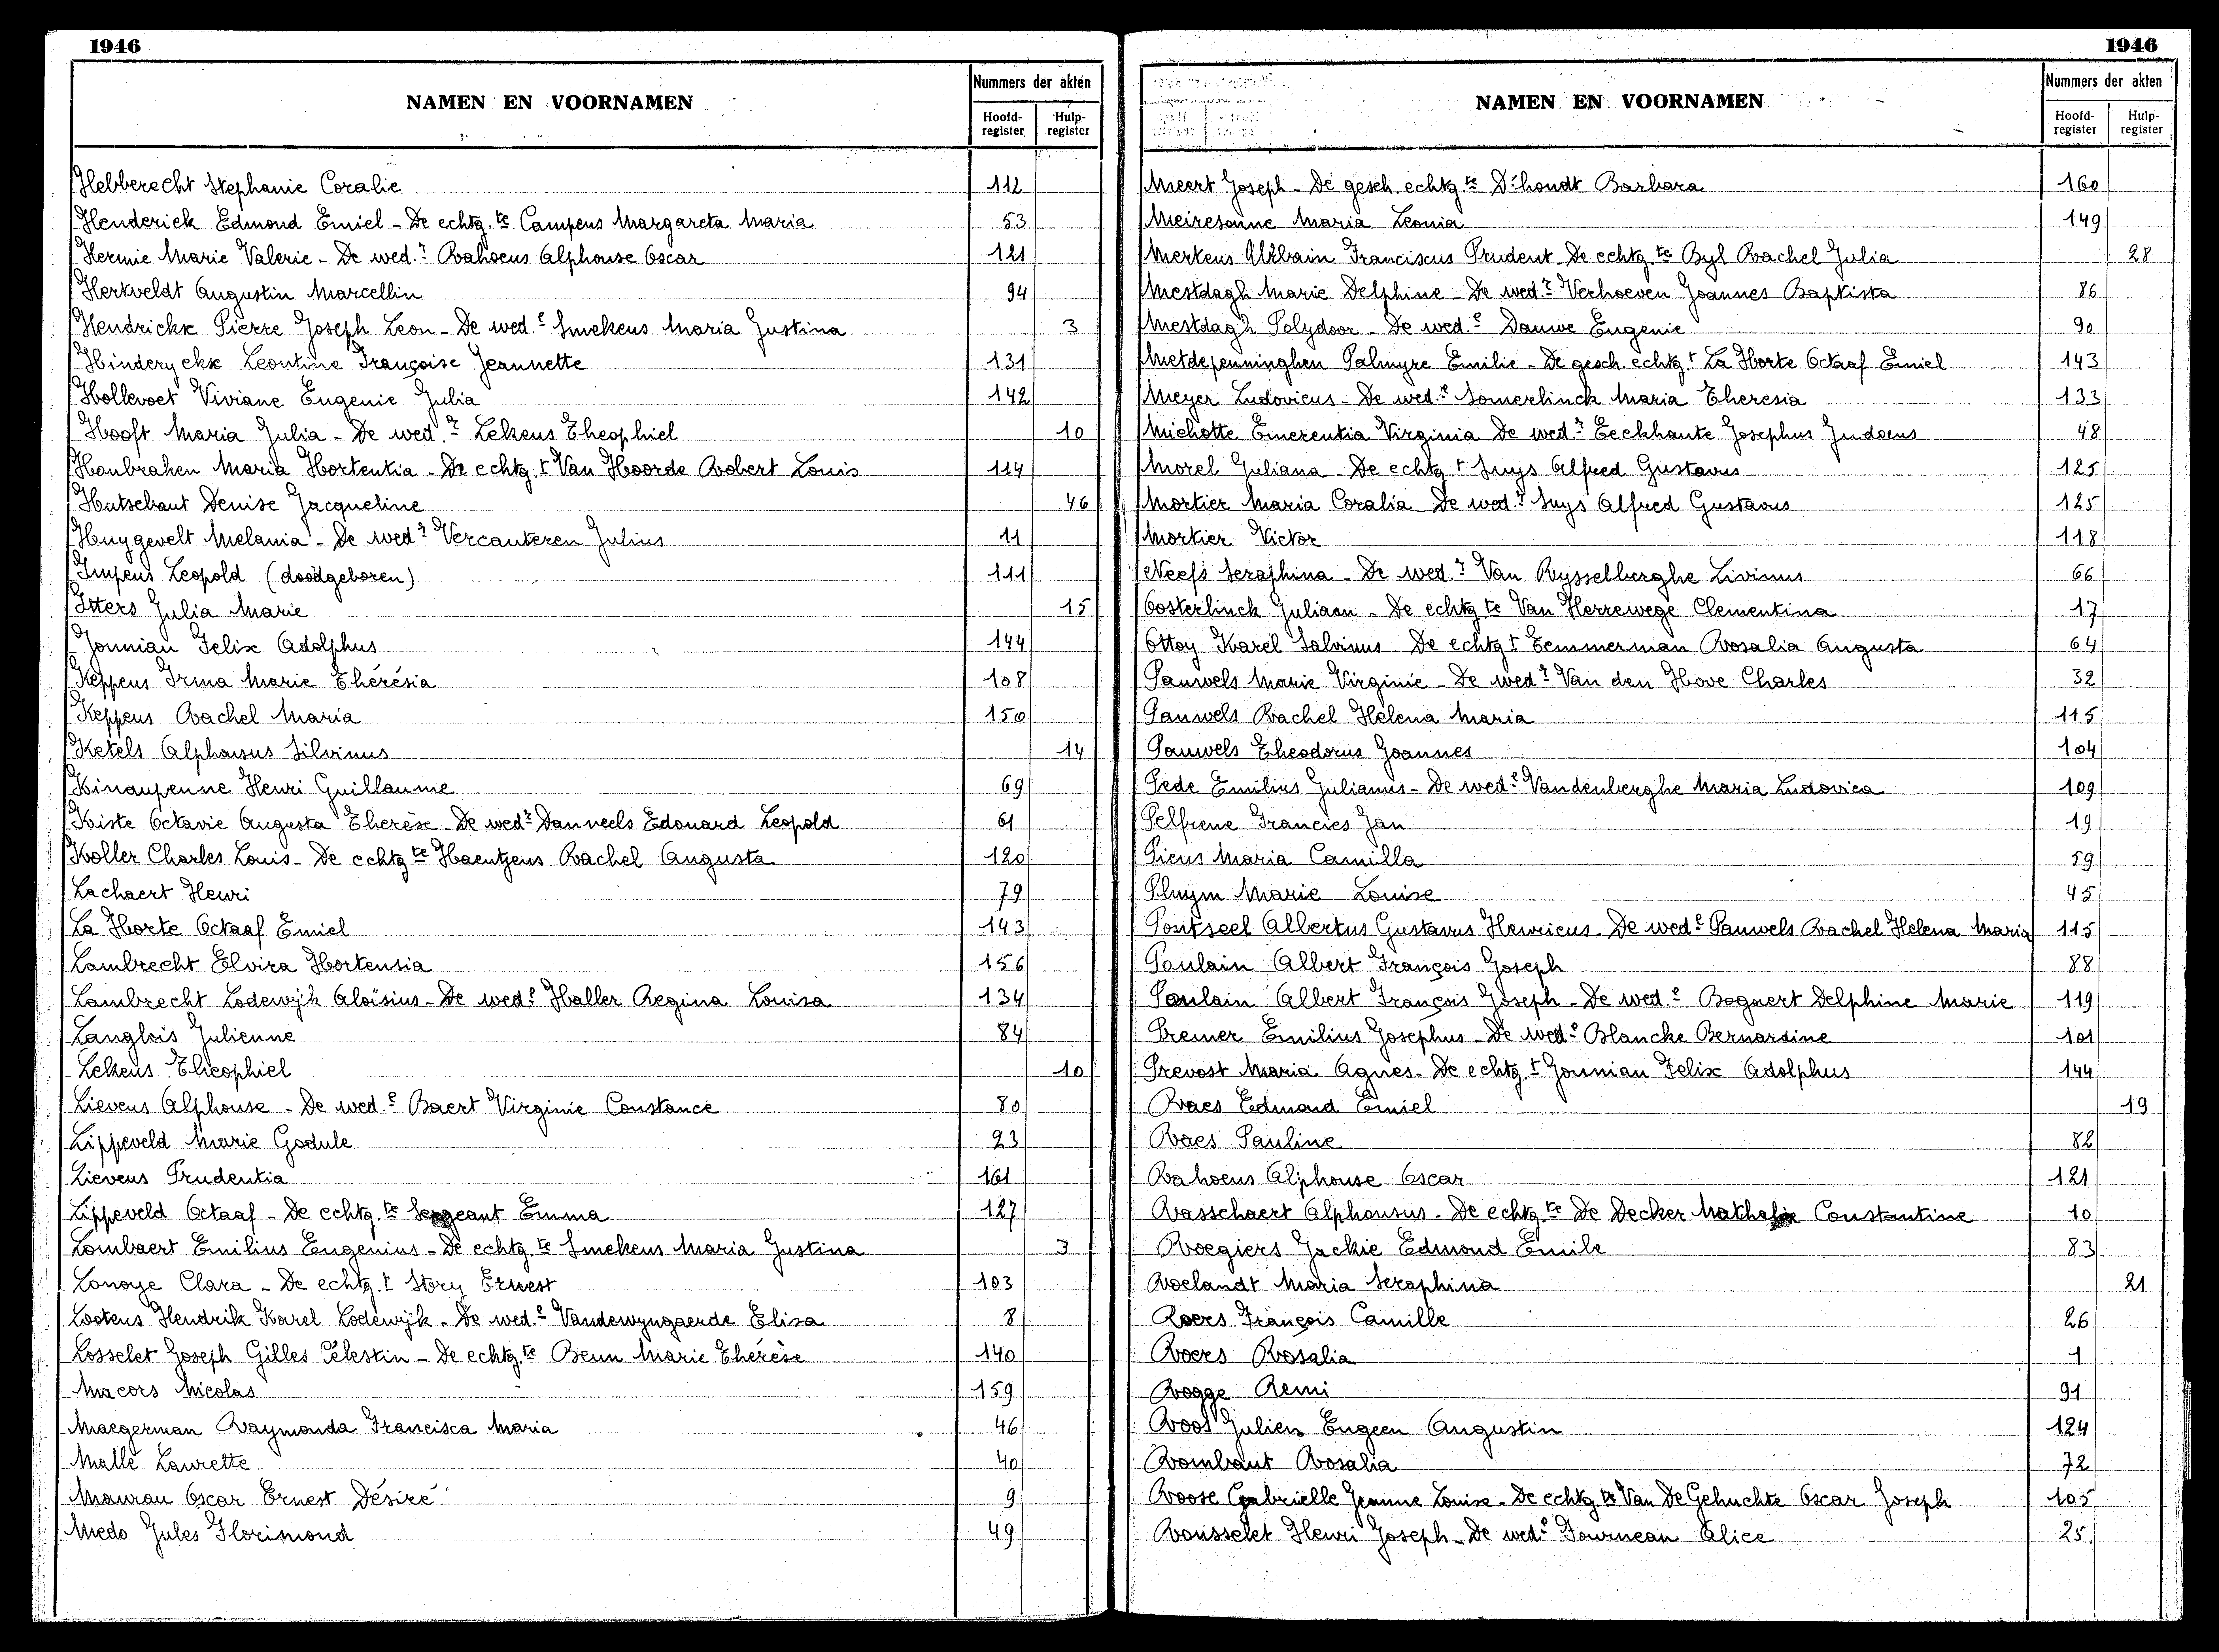 1946
NAMEN EN VOORNAMEN
Nummers der akten
Hoofd-register
Hulp-register
Hebberecht Stephanie Coralie 112
Henderick Edmond Emiel - De echtg.te Campens Margareta Maria 53
Hermie Marie Valerie - De wed.e Rahoens Alphonse Oscar 121
Herkveldt Augustin Marcellin 94
Hendrickx Pierre Joseph Leon - De wed.e Smekens Maria Justina 3
Hinderyckx Leontine Françoise Jeannette 131
Hollevoet Viviane Eugenie Julia 142
Hooft Maria Julia - De wed.e Lekens Theophiel 10
Houbrahen Maria Hortentia - De echtg.t Van Hoorde Robert Louis 114
Hutsebaut Denise Jacqueline 46
Huygevelt Melania - De wed.e Vercauteren Julius 11
Impens Leopold (doodgeboren) 111
Itters Julia Marie 15
Jonniau Felix Adolphus 144
Keppens Irma Marie Thérésia 108
Keppens Rachel Maria 150
Ketels Alphonsus Silvinus 14
Kinaupenne Henri Guillaume 69
Kiste Octavie Augusta Therèse - De wed.e Danneels Edouard Leopold 61
Koller Charles Louis - De echtg.te Haentjens Rachel Augusta 120
Lachaert Henri 79
La Horte Octaaf Emiel 143
Lambrecht Elvira Hortensia 156
Lambrecht Lodewijk Aloïsius - De wed.e Haller Regina Louisa 134
Langlois Julienne 84
Lekens Theophiel 10
Lievens Alphonse - De wed.e Baert Virginie Constance 80
Lippeveld Marie Godule 23
Lievens Prudentia 161
Lippeveld Octaaf - De echtg.te Sergeant Emma 127
Lombaert Emilius Eugenius - De echtg.te Smekens Maria Justina 3
Lonoye Clara - De echtg.t Story Ernest 103
Lootens Hendrik Karel Lodewijk - De wed.e Vandewyngaerde Elisa 8
Losselet Joseph Gilles Célestin - De echtg.te Benn Marie Therèse 140
Macors Nicolas 159
Maegerman Raymonda Francisca Maria 46
Mallé Laurette 40
Maurau Oscar Ernest Désiré 9
Medo Jules Florimond 49
1946
NAMEN EN VOORNAMEN
Nummers der akten
Hoofd-register
Hulp-register
Meert Joseph - De gesch. echtg.te D'hondt Barbara 160
Meiresonne Maria Leonia 149
Mertens Albain Franciscus Prudent De echtg.te Byl Rachel Julia 28
Mestdagh Marie Delphine - De wed.e Verhoeven Joannes Baptista 86
Mestdagh Polydoor - De wed.e Dauwe Eugenie 90
Metdepenninghen Palmyre Emilie - De gesch. echtg.t La Horte Octaaf Emiel 143
Meyer Ludovicus - De wed.e Somerlinck Maria Theresia 133
Michotte Emerentia Virginia De wed.e Eeckhaute Josephus Judocus 48
Morel Juliana De echtg.t Suys Alfred Gustavus 125
Mortier Maria Coralia De wed.e Suys Alfred Gustavus 125
Mortier Victor 118
Neefs Seraphina - De wed.e Van Rysselberghe Livinus 66
Oosterlinck Juliaan - De echtg.te Van Herrewege Clementina 17
Ottoy Karel Salvinus De echtg.t Temmerman Rosalia Augusta 64
Pauwels Marie Virginie - De wed.e Van den Hove Charles 32
Pauwels Rachel Helena Maria 115
Pauwels Theodorus Joannes 104
Pede Emilius Julianus - De wed.e Vandenberghe Maria Ludovica 109
Pelfrene Francies Jan 19
Piens Maria Camilla 59
Pluym Marie Louise 45
Pontseel Albertus Gustavus Henricus. De wed.e Pauwels Rachel Helena Maria 115
Poulain Albert François Joseph 88
Poulain Albert François Joseph - De wed.e Bogaert Delphine Marie 119
Premer Emilius Josephus - De wed.e Blancke Bernardine 101
Prevost Maria Agnes - De echtg.t Jonniau Felix Adolphus 144
Raes Edmond Emiel 19
Raes Pauline 82
Rahoens Alphonse Oscar 121
Rasschaert Alphonsus - De echtg.te De Decker Mathalie Constantine 10
Roegiers Jackie Edmond Emile 83
Roelandt Maria Seraphina 21
Roers François Camille 26
Roers Rosalia 1
Rogge Remi 91
Roos Julien Eugeen Augustin 124
Rombaut Rosalia 72
Roose Gabrielle Jeanne Louise - De echtg.te Van De Gehuchte Oscar Joseph 105
Rousselet Henri Joseph - De wed.e Fourneau Alice 25